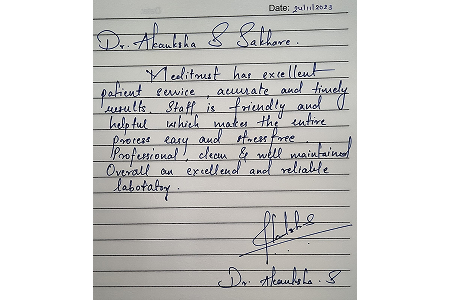 Date: 24/11/2023
Dr. Akanksha S Sakhare.
Meditrust has excellent
patient service, accurate and timely
results. Staff is friendly and
helpful which makes the entire
process easy and stress free.
Professional, clean & well maintained
Overall an excellend and reliable
labotatoy.
Dr. Akanksha . S